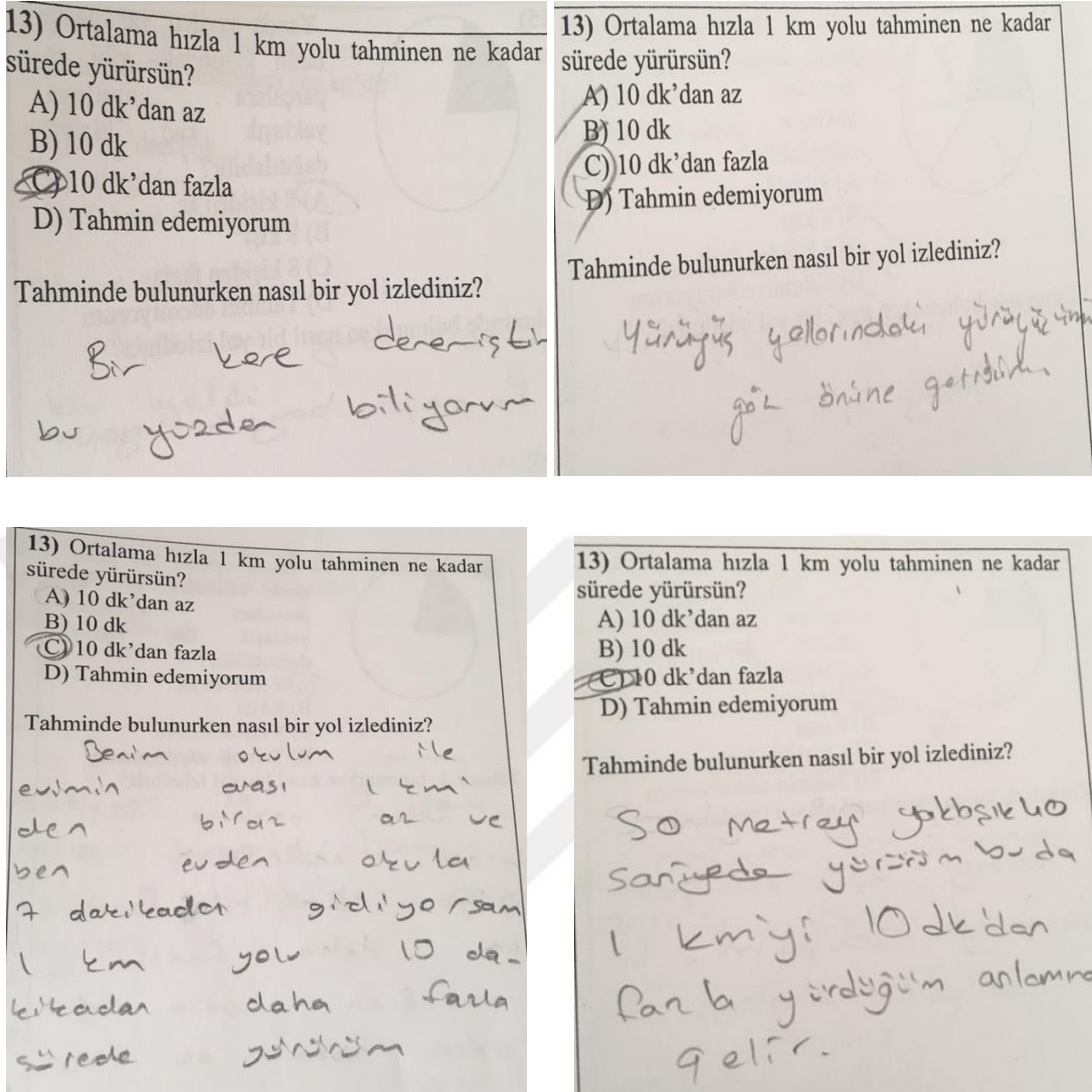 13) Ortalama hızla 1 km yolu tahminen ne kadar
sürede yürürsün?
A) 10 dk'dan az
B) 10 dk
C) 10 dk'dan fazla
D) Tahmin edemiyorum
Tahminde bulunurken nasıl bir yol izlediniz?
Bir kere denemiştim
bu yüzden biliyorum
13) Ortalama hızla 1 km yolu tahminen ne kadar
sürede yürürsün?
A) 10 dk'dan az
B) 10 dk
C) 10 dk'dan fazla
D) Tahmin edemiyorum
Tahminde bulunurken nasıl bir yol izlediniz?
Yürüyüş yollarındaki yürüyüşümü
göz önüne getirdim
13) Ortalama hızla 1 km yolu tahminen ne kadar
sürede yürürsün?
A) 10 dk'dan az
B) 10 dk
C) 10 dk'dan fazla
D) Tahmin edemiyorum
Tahminde bulunurken nasıl bir yol izlediniz?
Benim okulum ile
evimin arası 1 km'
den biraz az ve
ben evden okula
7 dakikadan gidiyorsam
1 km yolu 10 da-
kikadan daha fazla
sürede yürürüm
13) Ortalama hızla 1 km yolu tahminen ne kadar
sürede yürürsün?
A) 10 dk'dan az
B) 10 dk
C) 10 dk'dan fazla
D) Tahmin edemiyorum
Tahminde bulunurken nasıl bir yol izlediniz?
50 metreyi yaklaşık 40
saniyede yürürüm bu da
1 km'yi 10 dk'dan
fazla yürdüğüm anlamına
gelir.